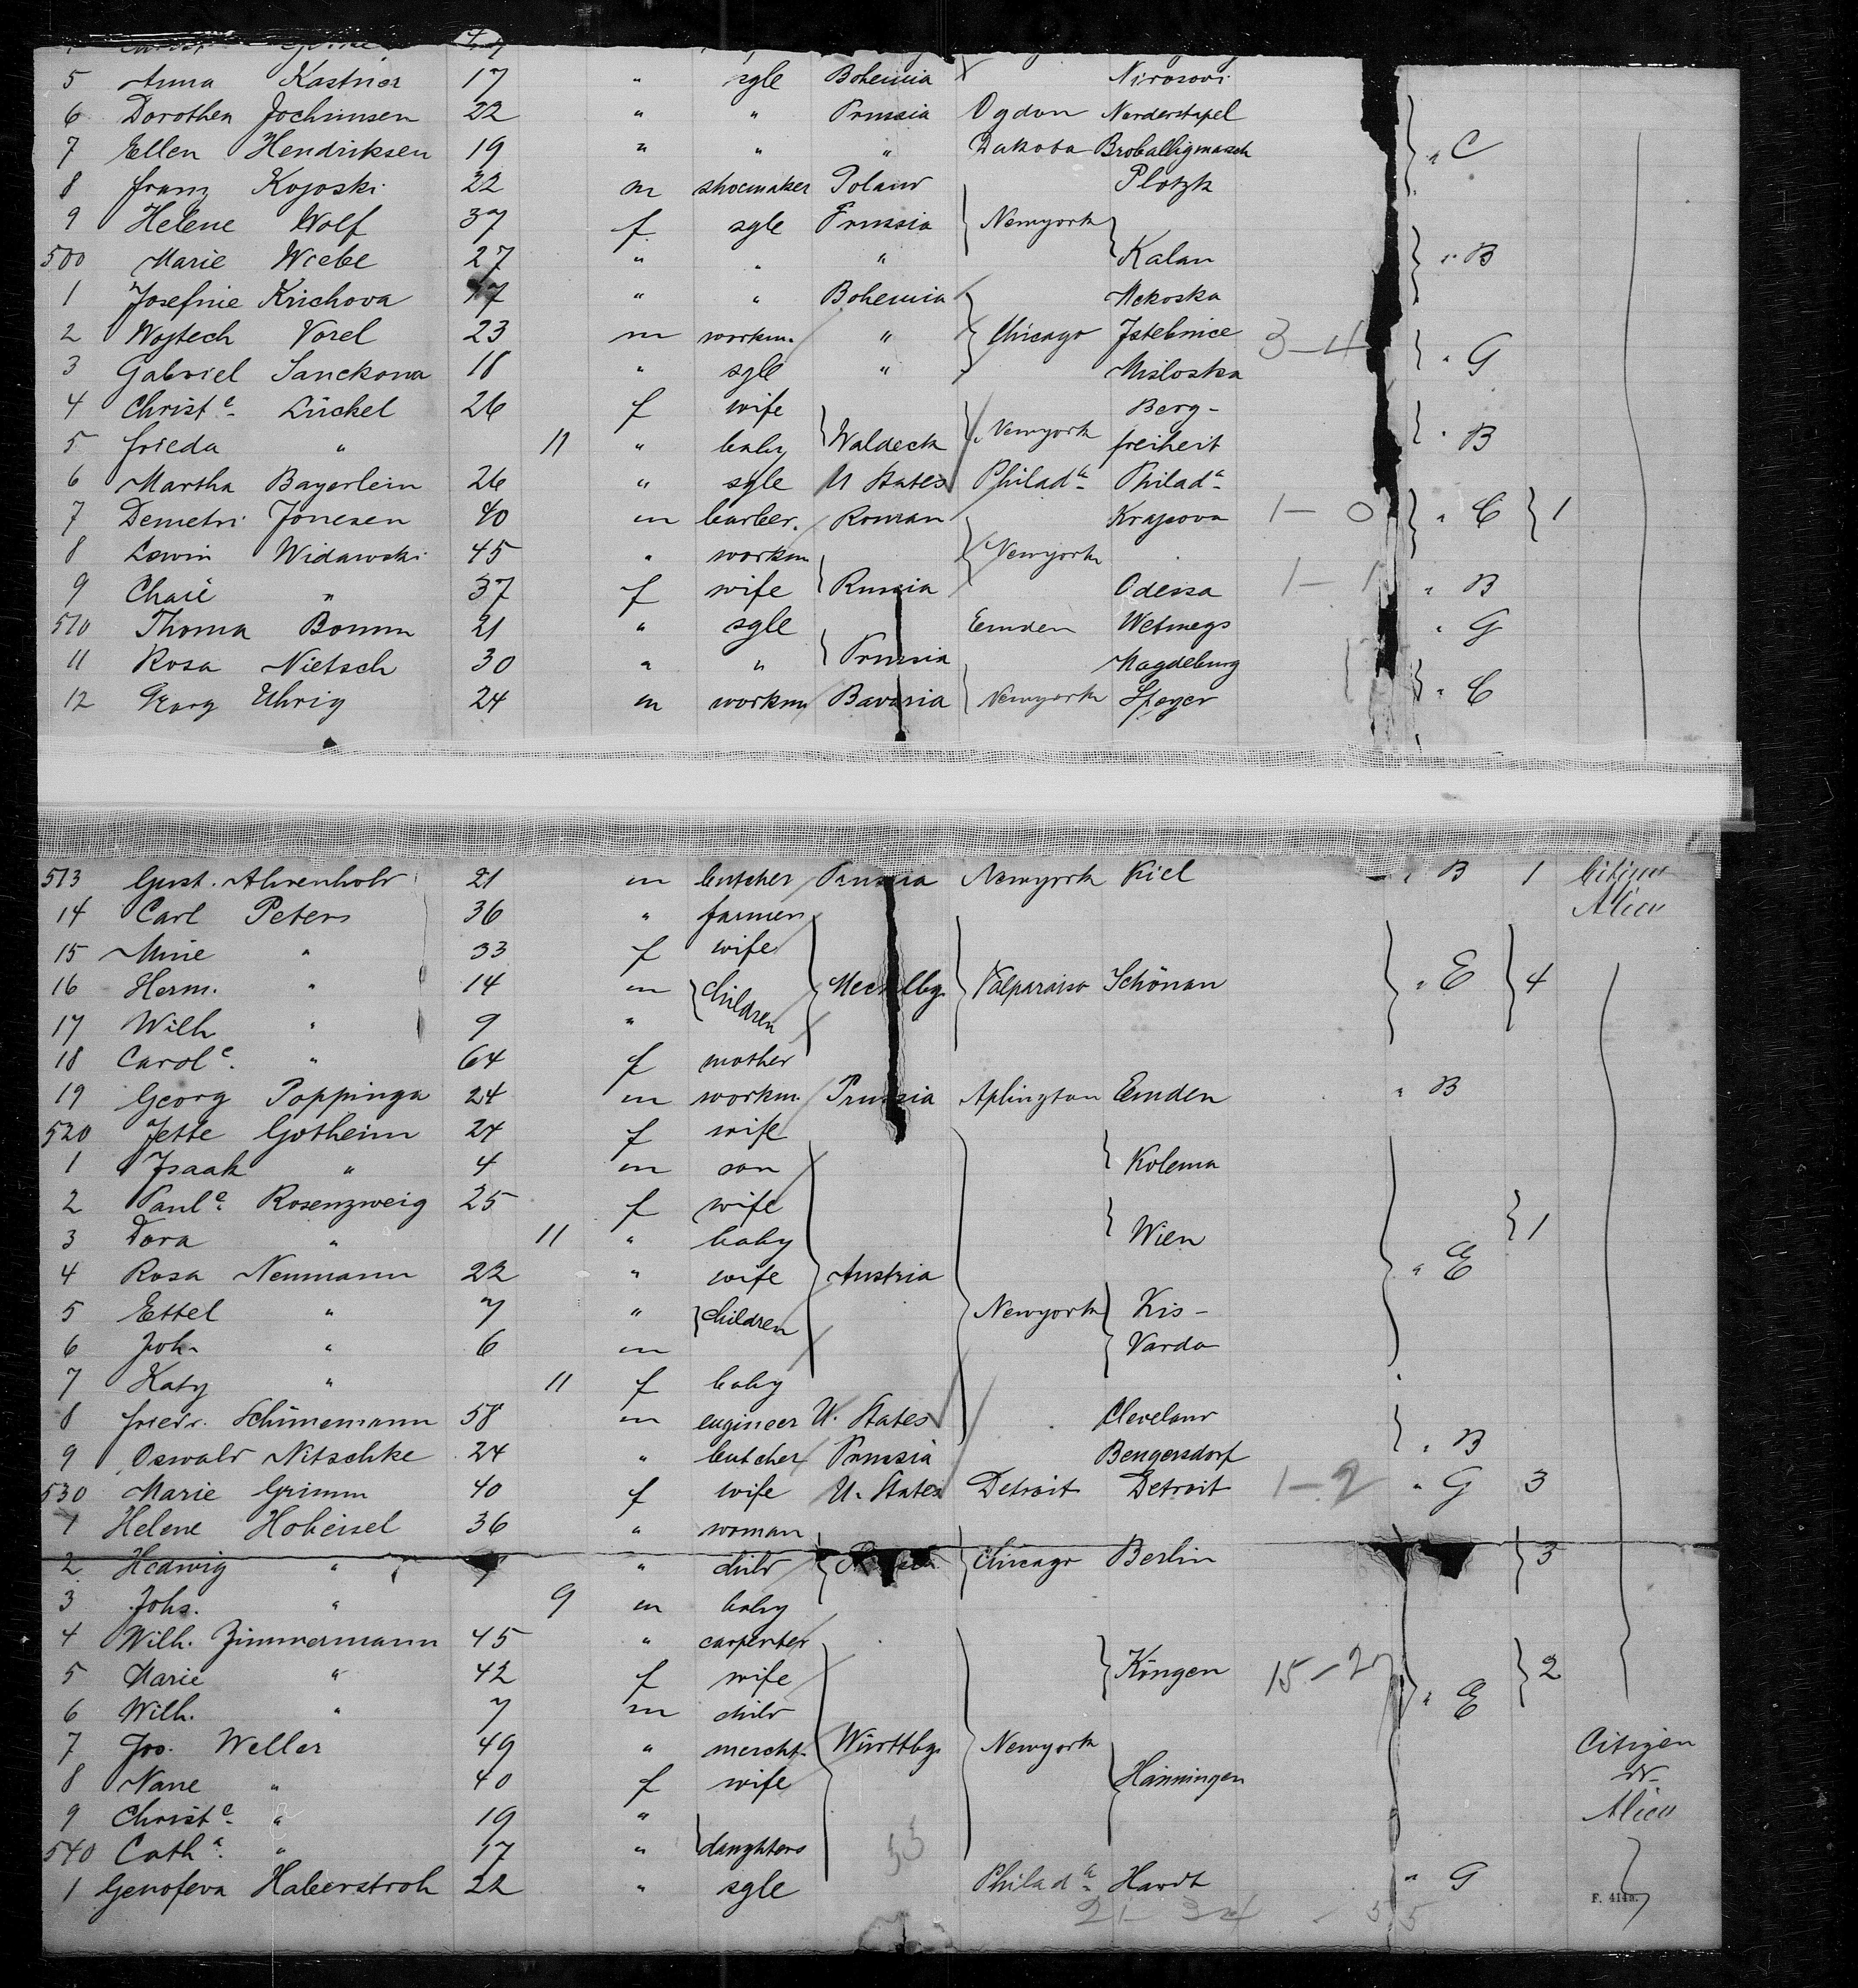 5 Anna Kastner 17 " sgle Bohemia
6 Dorothea Jochimsen 22 " " Prussia Ogdon Norderstapel
7 Ellen Hendriksen 19 " " " Dakota " C
8 Franz Kojoski 22 m shoemaker Poland Plotzk
9 Helene Wolf 37 f sgle Prussia Newyork
500 Marie Wiebe 27 " " " Kalan " B
1 Josefine Krichova 17 " " Bohemia
2 Wojtech Vorel 23 m workm. " Chicago Jstebnice 3-4 " G
3 Gabriel 18 " sgle "
4 Christe Lückel 26 f wife Berg-
5 Frieda " 11 " baby Waldeck Newyork freiheit " B
6 Martha Bayerlein 26 " sgle U States Philada Philada
7 Demetri Jonesen 40 m barber. Roman Krajova 1-0 " C 1
8 Lewin Widawski 45 " workm Newyork
9 Chaie " 37 f wife Russia Odessa 1-1 " B
510 Thoma Bomm 21 " sgle Emden " G
11 Rosa Nietsch 30 " " Prussia Magdeburg
12 Georg Uhrig 24 m workm Bavaria Newyork Speyer " C
513 Gust. Ahrenhold 21 m butcher Prussia Newyork Kiel " B 1 Citizen
14 Carl Peters 36 " farmer Alien
15 Mine " 33 f wife
16 Herm. " 14 m children Mecklbg. Valparaiso Schönau " E 4
17 Wilh " 9 "
18 Carole. " 64 f mother
19 Georg Poppinga 24 m workm. Prussia Aplington Emden " B
520 Jette Gotheim 24 f wife
1 Isaak " 4 m son Kolema
2 Paule. Rosenzweig 25 f wife
3 Dora " 11 " baby Wien 1
4 Rosa Neumann 22 " wife Austria " E
5 Ettel " 7 " children Newyork Kis-
6 Joh. " 6 m Varda
7 Katy " 11 f baby
8 Friedr. Schünemann 58 m engineer U. States Cleveland
9 Oswald Nitschke 24 " butcher Prussia Bengersdorf " B
530 Marie Grimm 40 f wife U. States Detroit Detroit 1-2 " G 3
1 Helene Hoheisel 36 " woman
2 Hedwig " " child Chicago Berlin 3
3 Johs. " 9 m baby
4 Wilh. Zimmermann 45 " carpenter
5 Marie " 42 f wife Köngen 15-2 2
6 Wilh. " 7 m child " E
7 Jos. Weller 49 " mercht. Württbg. Newyork Citizen
8 Nane " 40 f wife Hänningen
9 Christe. " 19 " Alien
540 Catha. " 17 " daughters
1 Genofeva Haberstroh 22 " sgle Philada. Hardt " G
F. 414a.